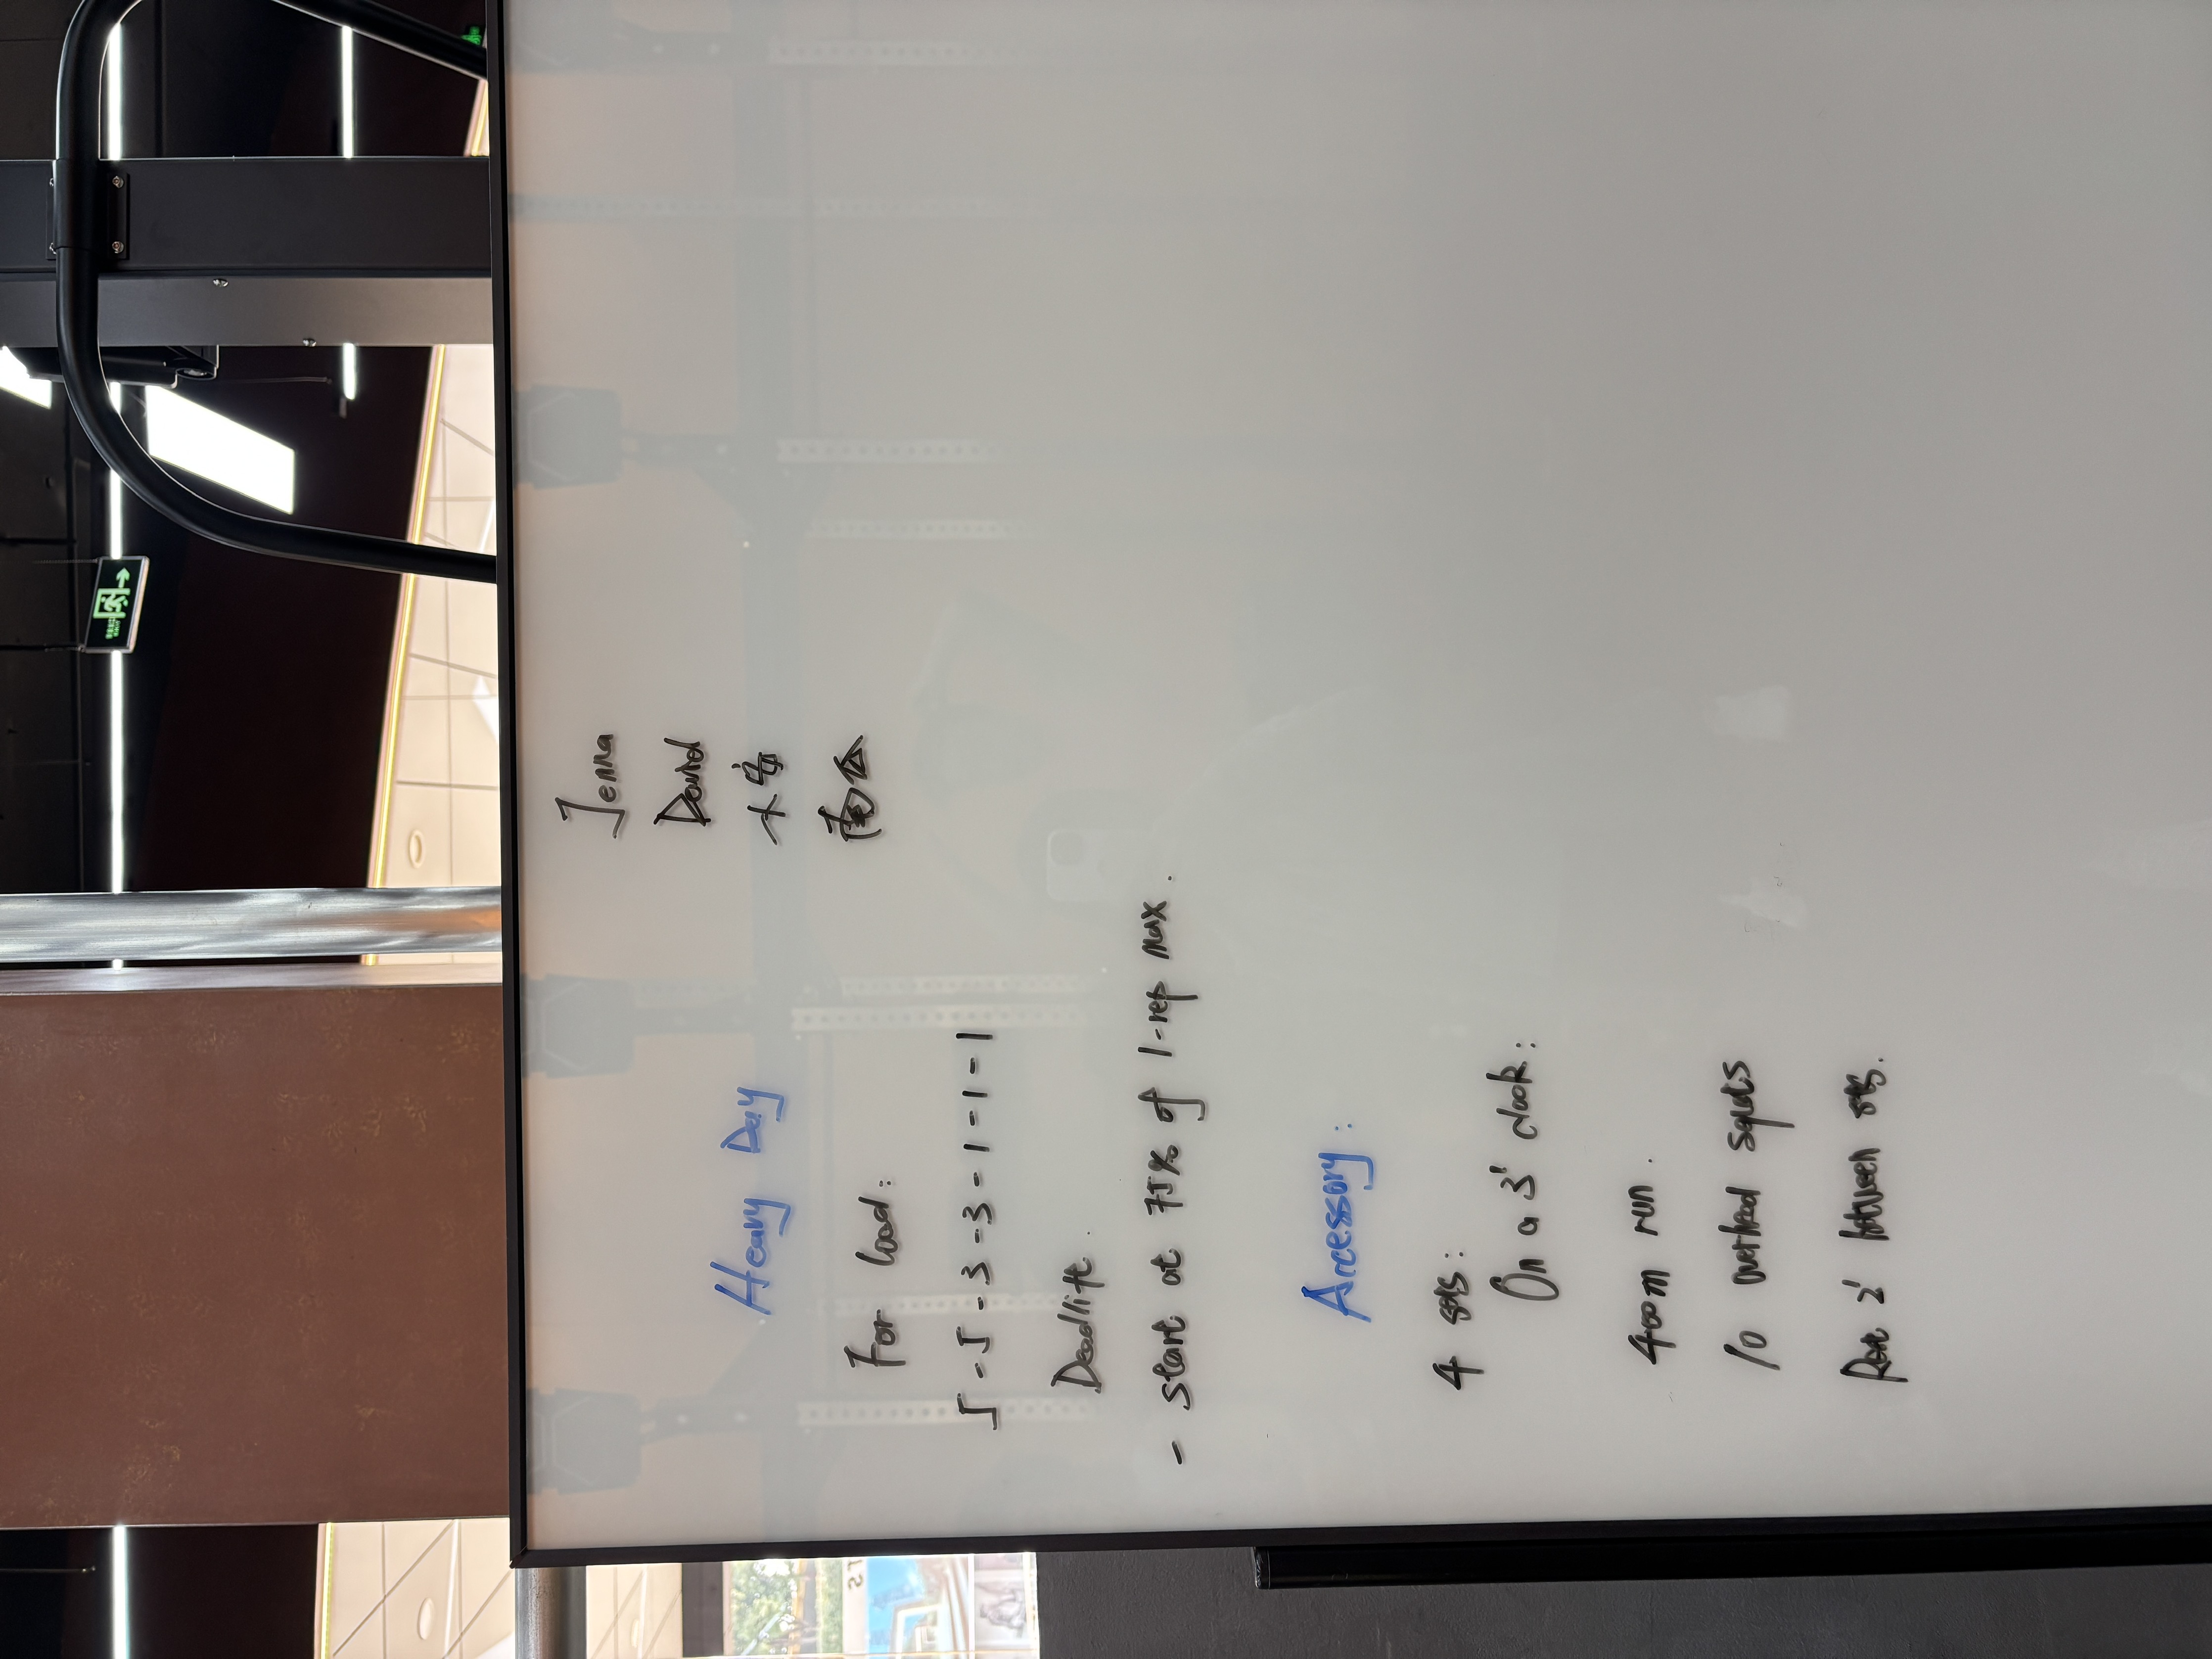 Jenna
David
大安
Heavy Day
For load:
5-5-3-3-3-1-1-1
Deadlift.
- start at 75% of 1-rep max.
Accessory:
4 sets:
On a 3' clock:
400m run.
10 overhead squats
Rest 2' between sets.